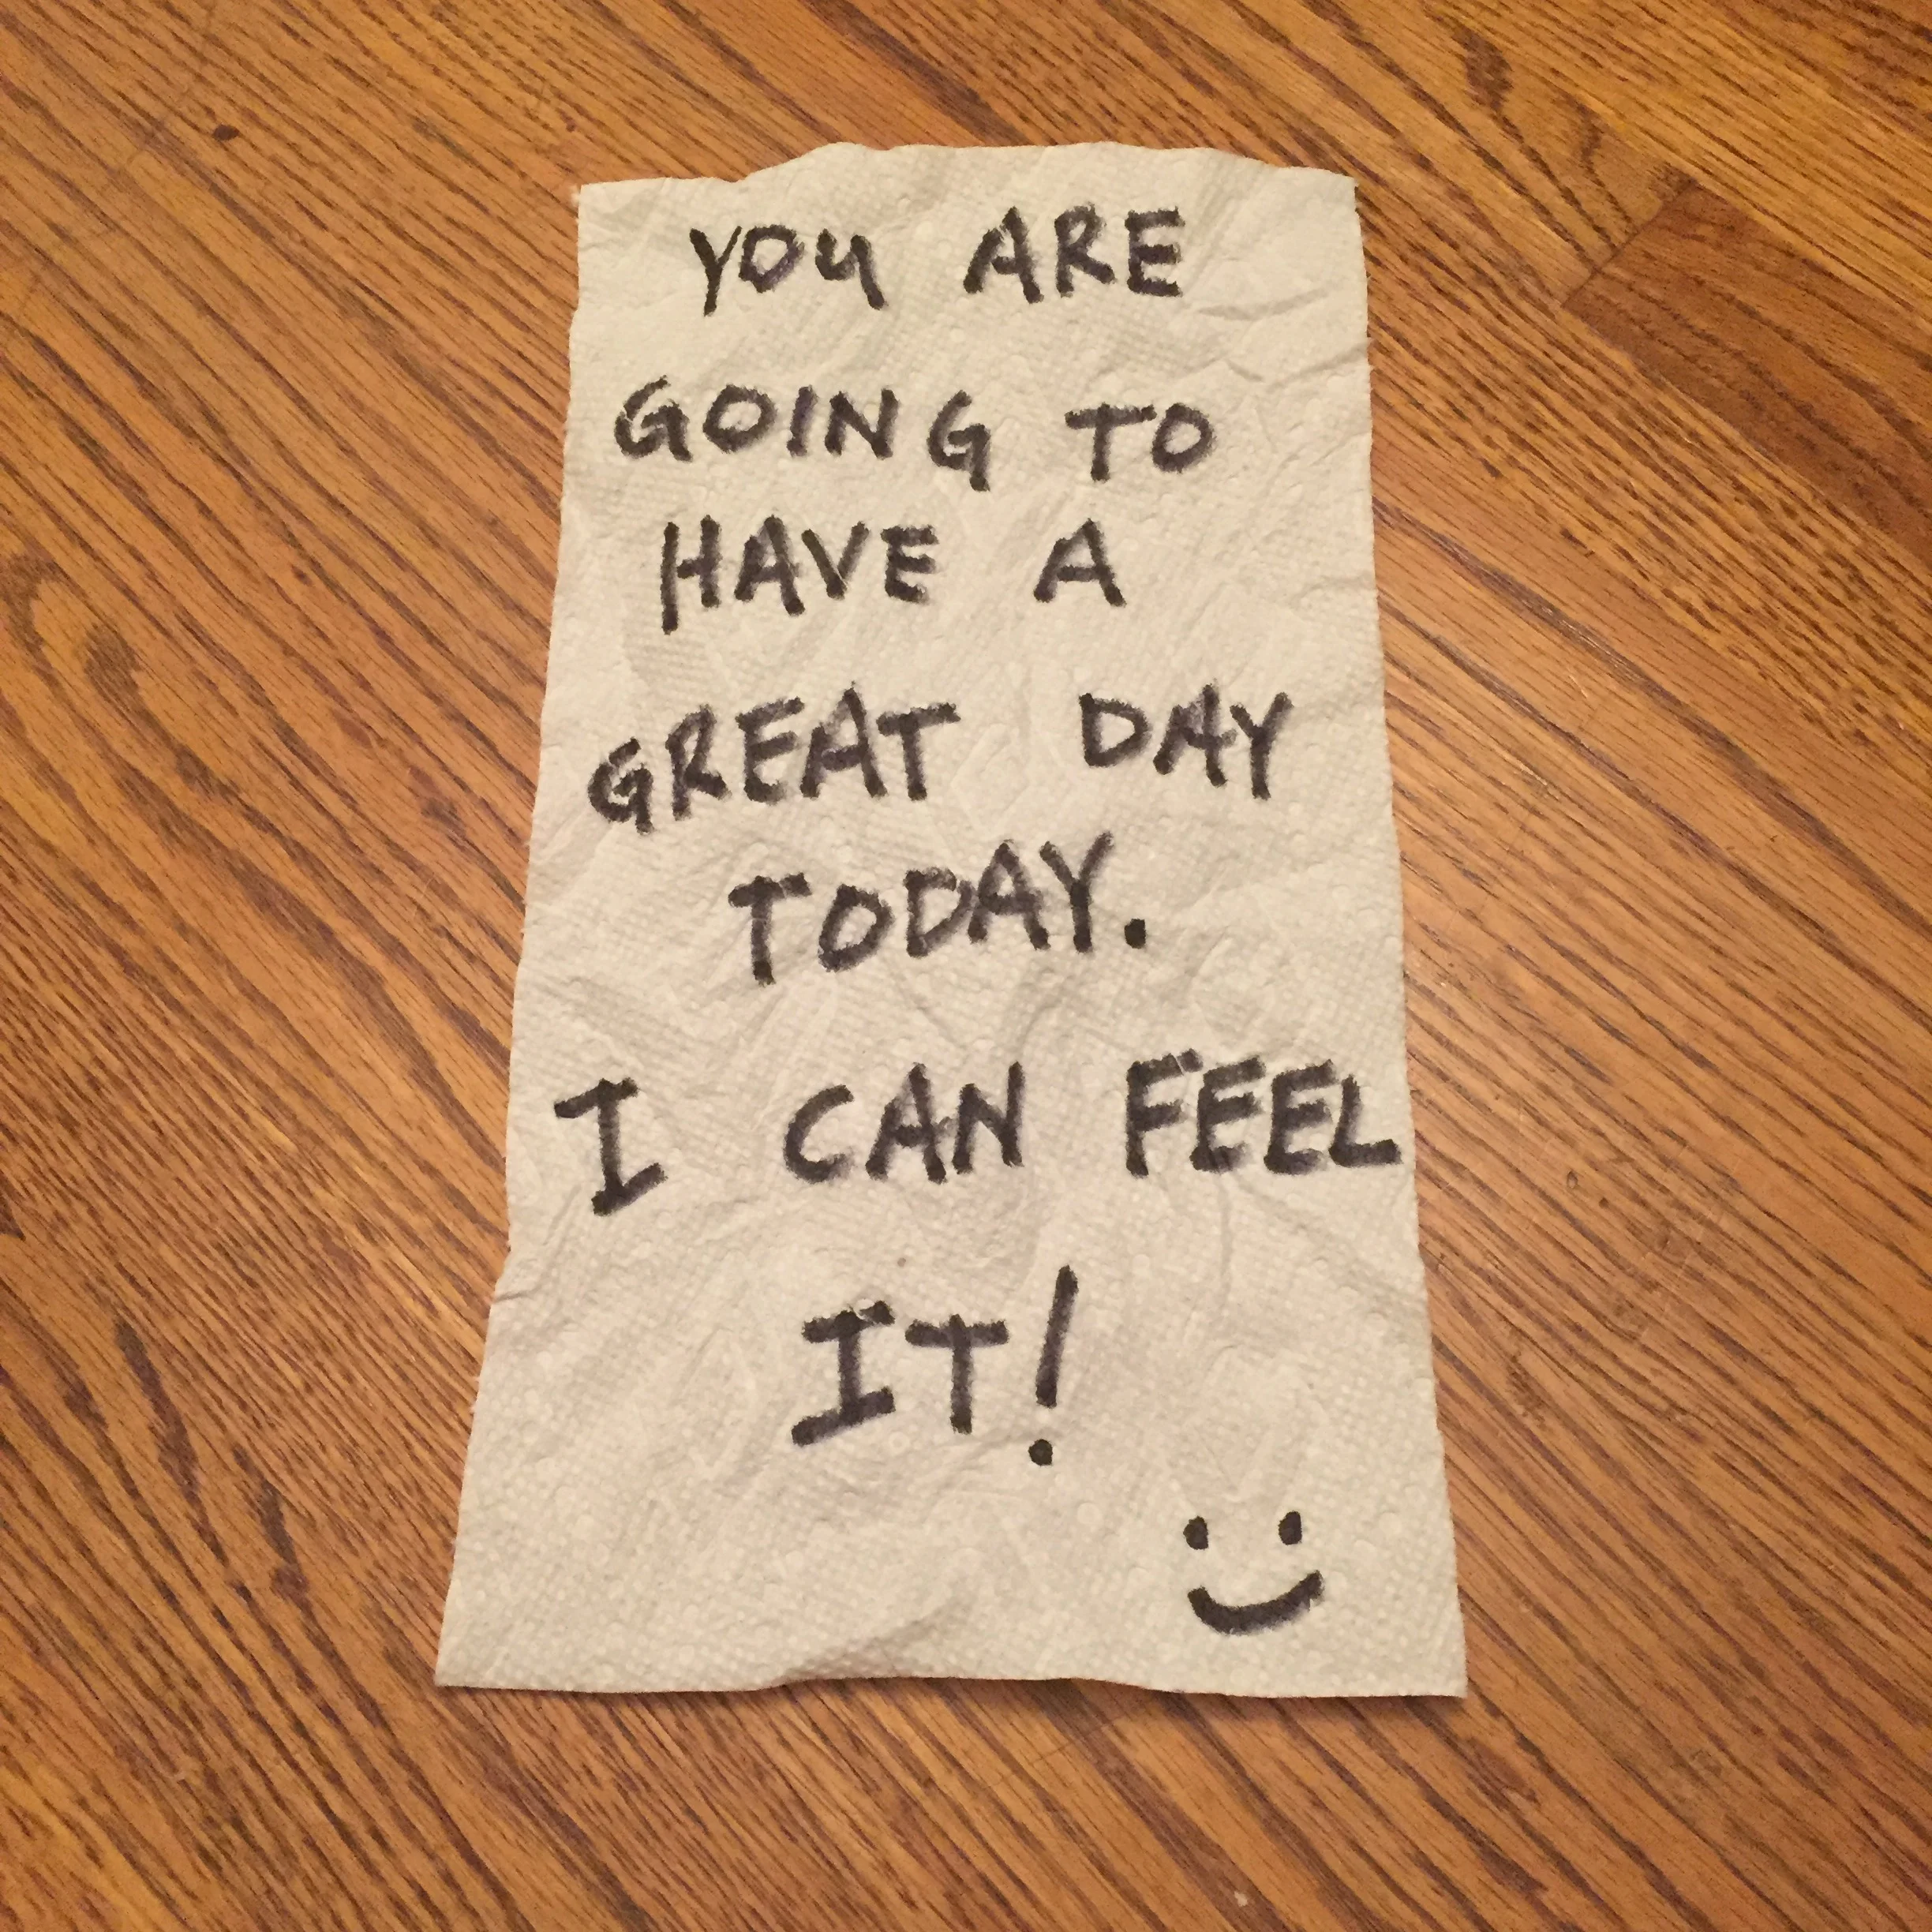 YOU ARE
GOING TO
HAVE A
GREAT DAY
TODAY.
I CAN FEEL
IT!